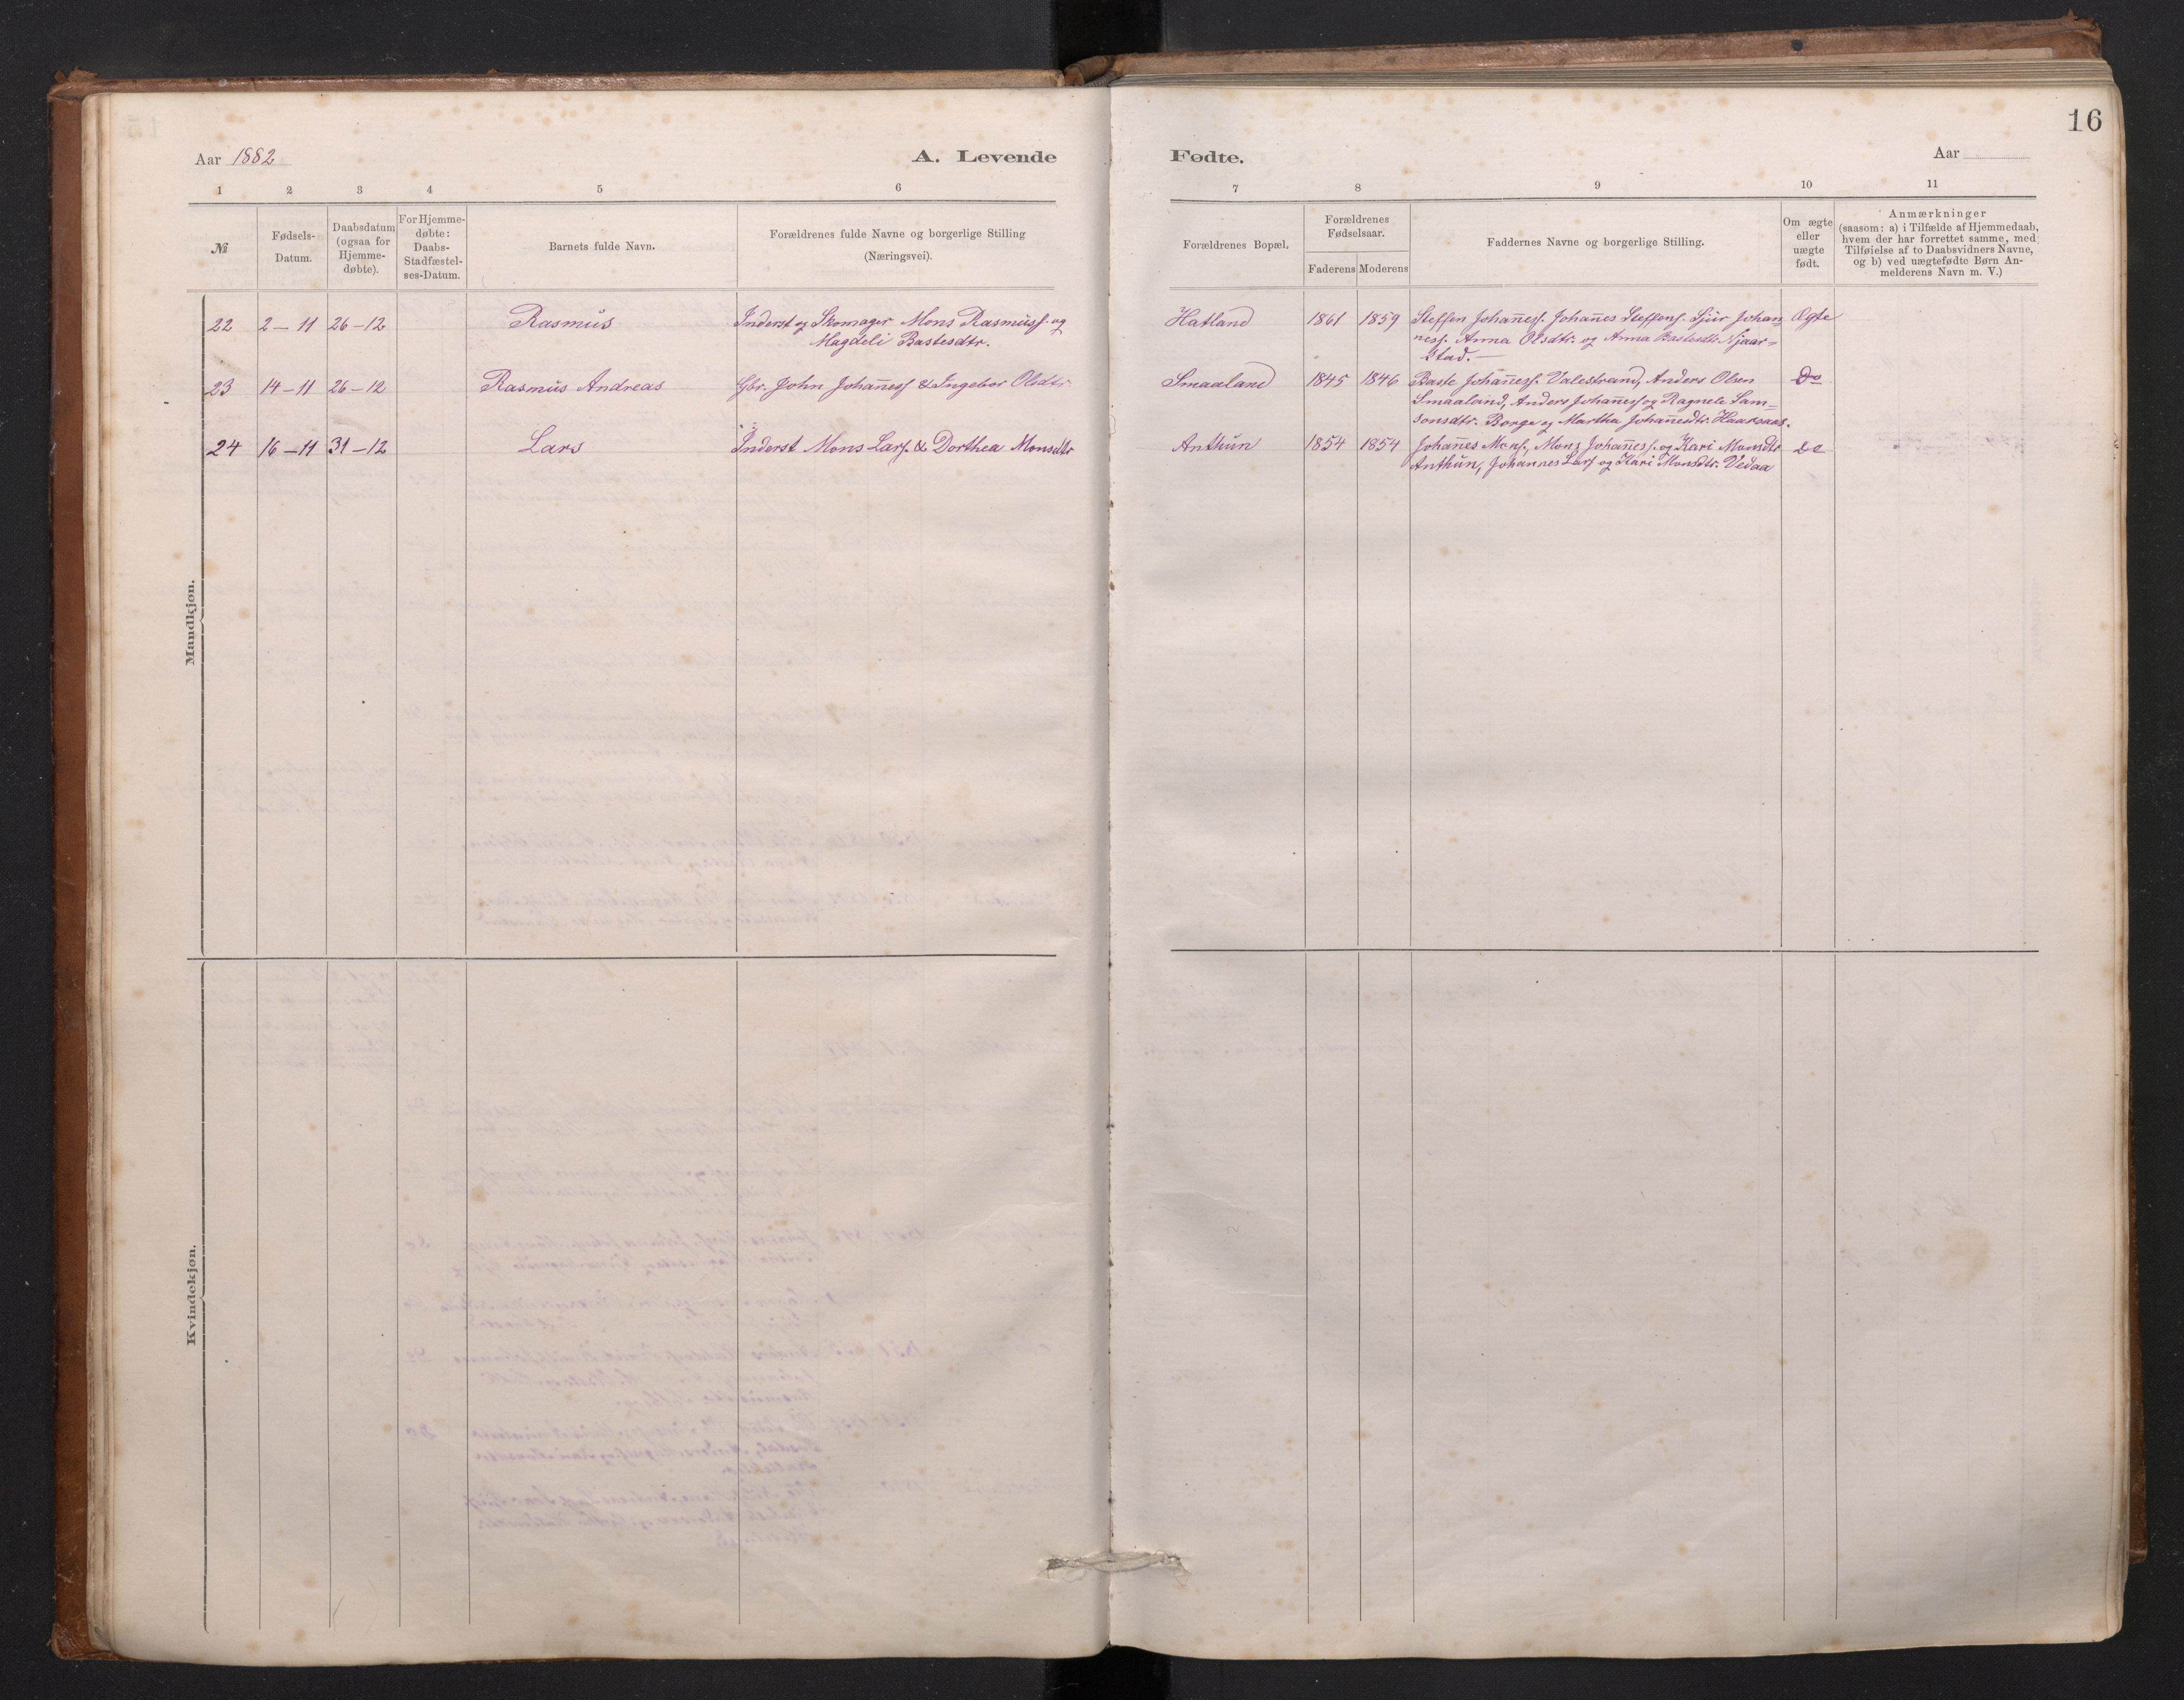 16
Aar 1882
A. Levende
Fødte.
Aar
1 2 3 4 5 6 7 8 9 10 11
№
Fødsels-
Datum.
Daabsdatum
(ogsaa for
Hjemme-
døbte).
For Hjemme-
døbte:
Daabs-
Stadfæstel-
ses-Datum.
Barnets fulde Navn.
Forældrenes fulde Navne og borgerlige Stilling
(Næringsvei).
Forældrenes Bopæl.
Forældrenes
Fødselsaar.
Faderens Moderens
Faddernes Navne og borgerlige Stilling.
Om ægte
eller
uægte
født.
Anmærkninger
(saasom: a) i Tilfælde af Hjemmedaab,
hvem der har forrettet samme, med
Tilføielse af to Daabsvidners Navne,
og b) ved uægtefødte Børn An-
melderens Navn m. V.)
Mandkjøn.
22 2-11 26-12 Rasmus Inderst og Skomager Mons Rasmuss. og
Magdeli Bastesdtr.
Hatland 1861 1859 Steffen Johañess. Johañes Steffens. Sjur Johan
ness. Anna Olsdtr. og Anna Bastesdtr. Njaar-
stad.—
Ægte
23 14-11 26-12 Rasmus Andreas Gbr. John Johañess & Ingebor Olsdtr
Smaaland 1845 1846 Baste Johañess. Valestrand, Anders Olsen
Smaaland, Anders Johañess og Ragnele Sam-
sonsdtr. Borge og Martha Johañesdtr. Haaksnes.
Do
24 16-11 31-12 Lars Inderst Mons Lars. & Dorthea Monsdtr
Anthun 1854 1854 Johañes Mons., Mons Johañess. og Kari Monsdtr
Anthun, Johannes Lars og Kari Monsdtr. Vedaa
do
Kvindekjøn.